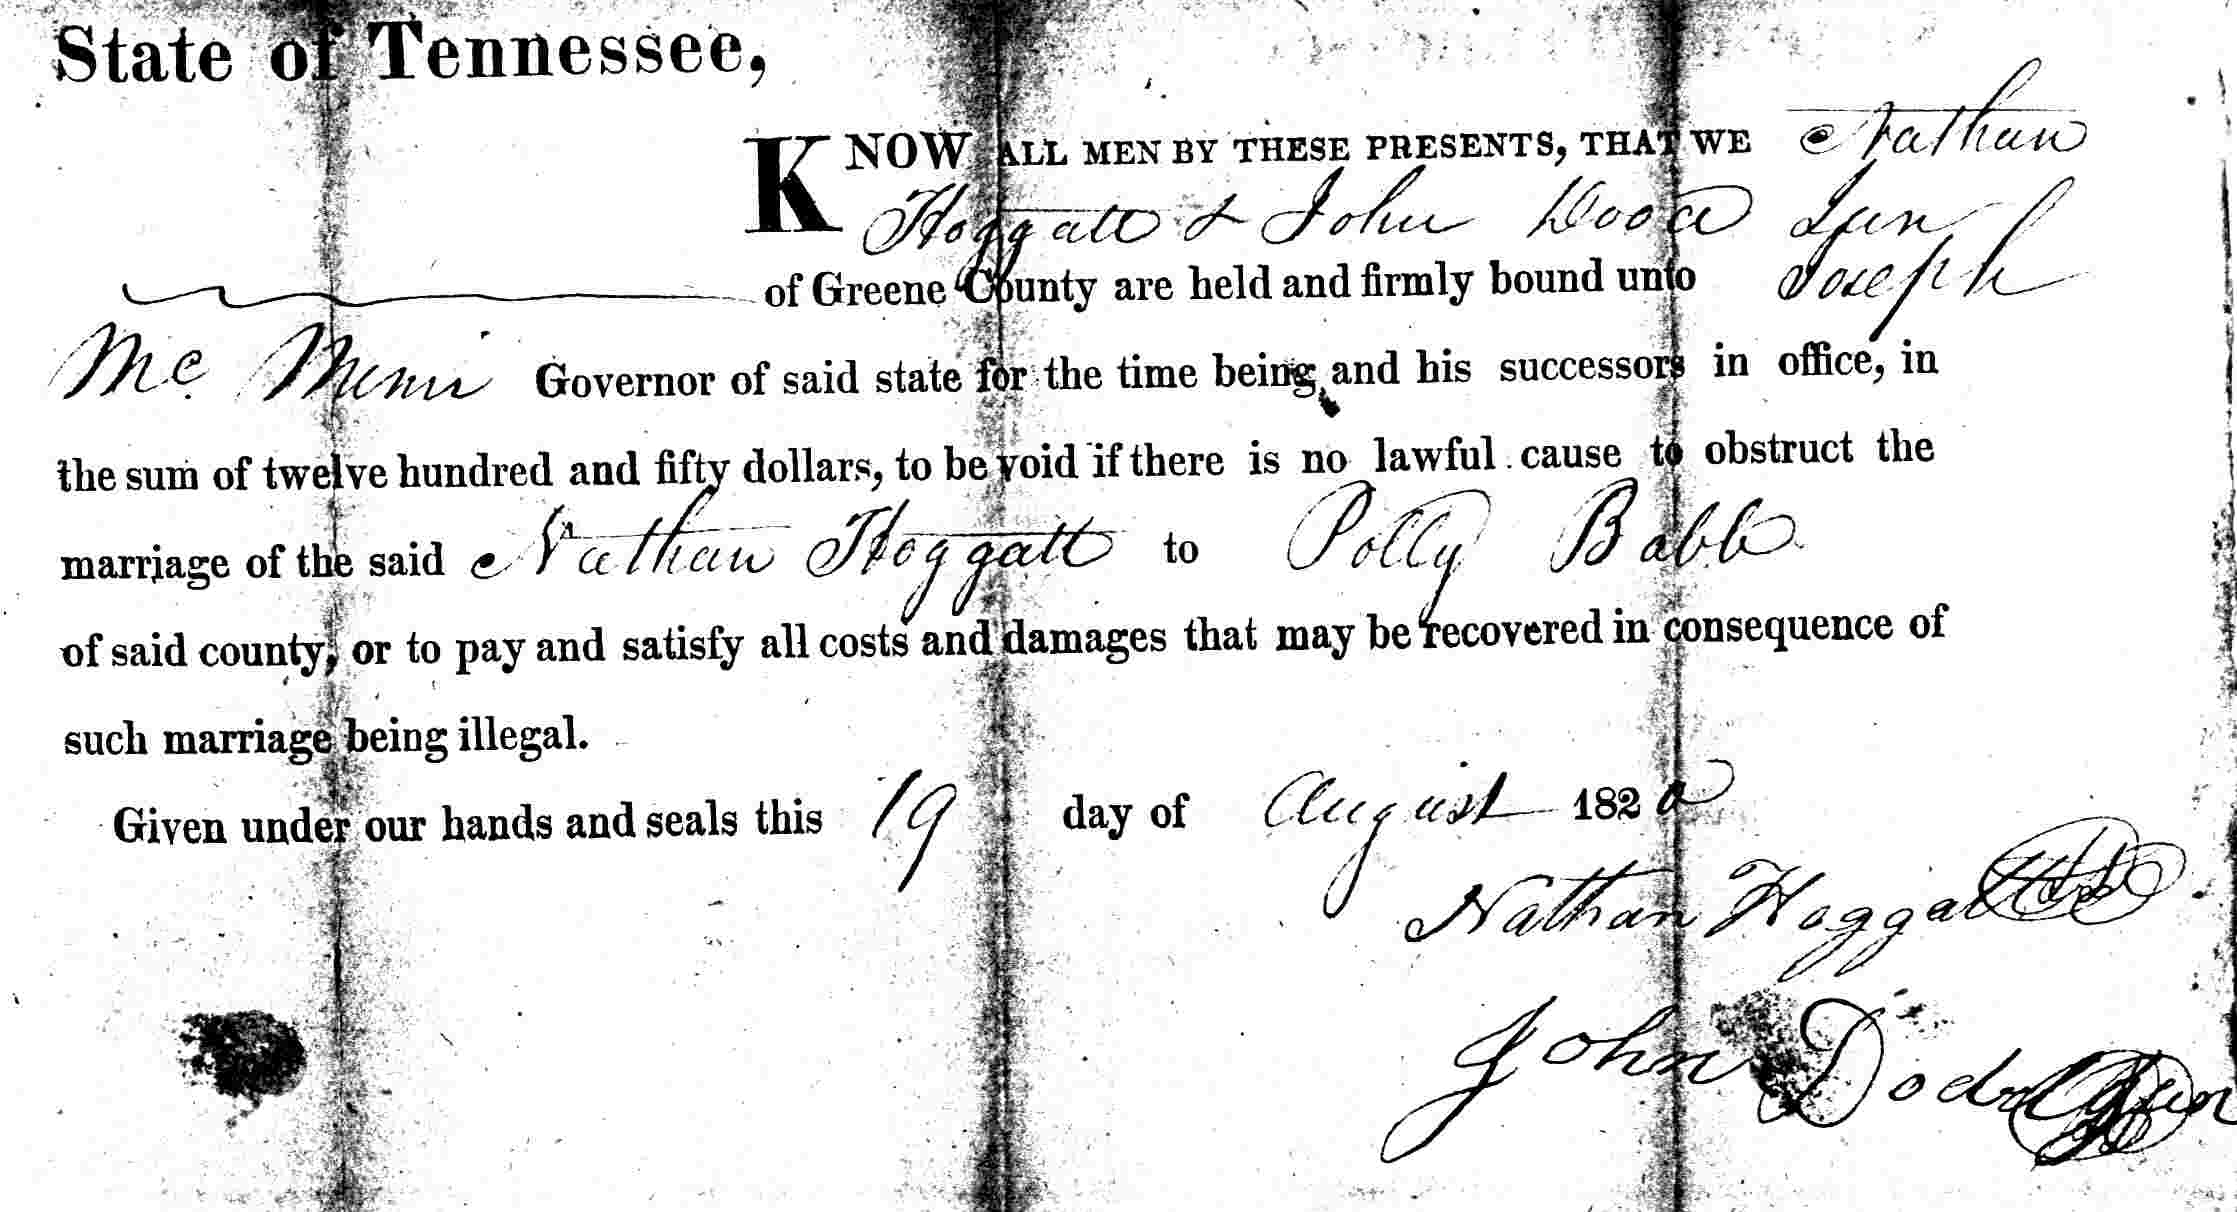 State of Tennessee,
KNOW ALL MEN BY THESE PRESENTS, THAT WE Nathan
Hoggatt & John Dodd Jun
of Greene County are held and firmly bound unto Joseph
Mc Minn Governor of said state for the time being, and his successors in office, in
the sum of twelve hundred and fifty dollars, to be void if there is no lawful cause to obstruct the
marriage of the said Nathan Hoggatt to Polly Babb
of said county, or to pay and satisfy all costs and damages that may be recovered in consequence of
such marriage being illegal.
Given under our hands and seals this 19 day of August 1820
Nathan Hoggatt
John Dodd Jun